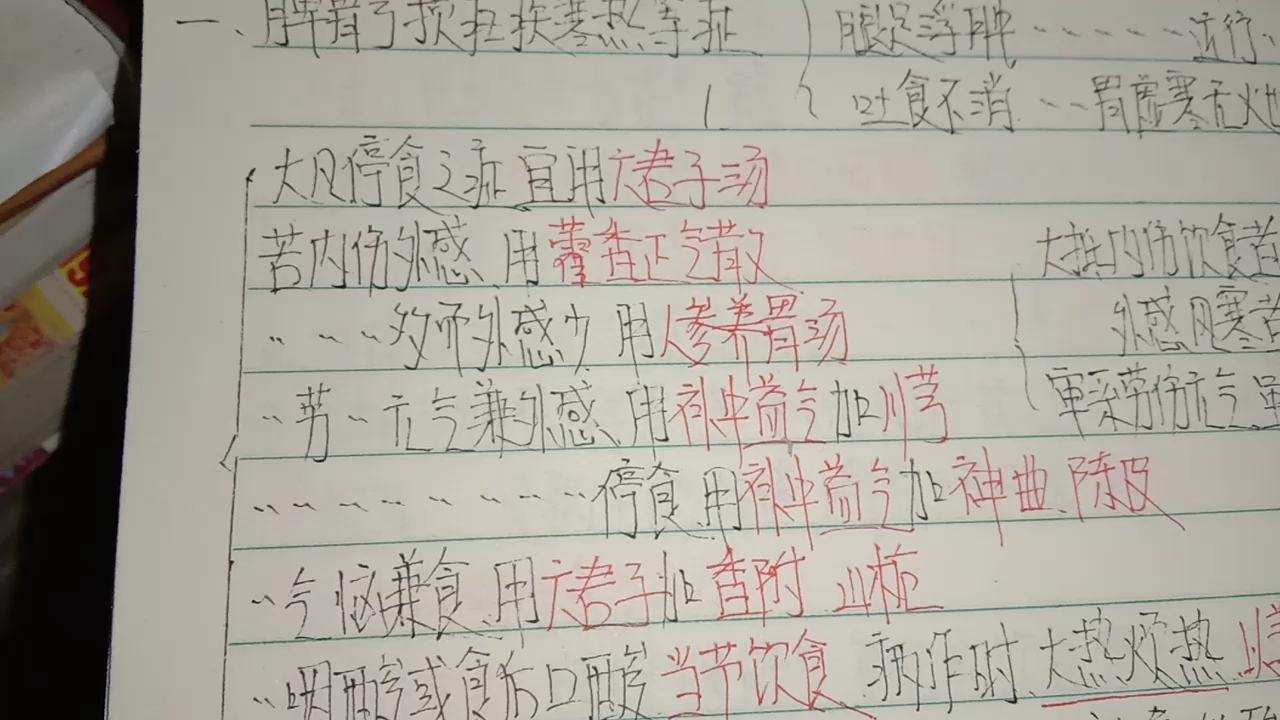 一、脾胃亏损 寒热等症
腿足浮肿······运行
吐食不消···胃虚寒无火
大凡停食之症宜用六君子汤
若内伤外感、用藿香正气散
大抵内伤饮食者
···多而外感少 用人参养胃汤
外感风寒者
··劳··元气兼外感、用补中益气加川芎
劳伤元气虽
··········停食、用补中益气加神曲、陈皮
··气恼兼食、用六君子加香附、山栀
··咽酸或食后口酸 当节饮食、病作时、大热烦热